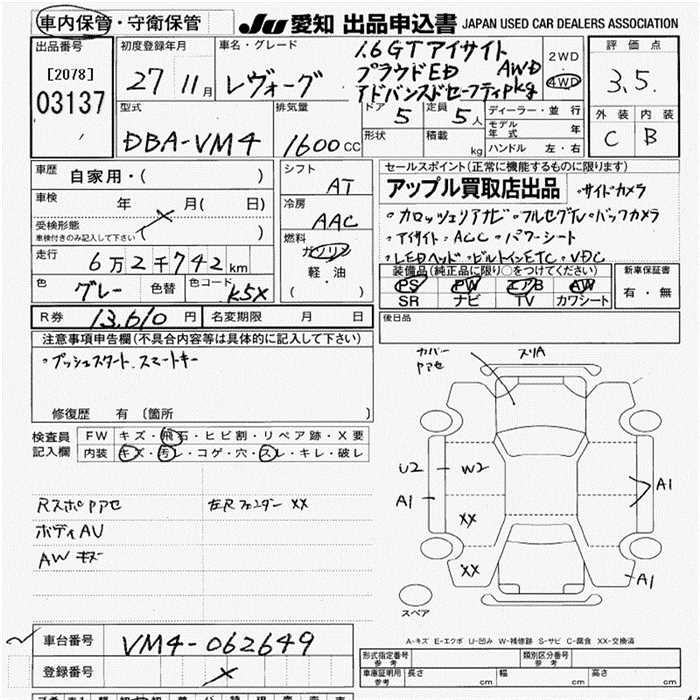 車内保管・守衛保管 JU 愛知 出品申込書 JAPAN USED CAR DEALERS ASSOCIATION
出品番号 [2078] 03137
初度登録年月 27 11月
車名・グレード レヴォーグ
1.6GTアイサイト
プラウドED AWD
アドバンスドセーフティpkg
2WD 4WD
評価点 3.5.
外装 内装
C B
型式 DBA-VM4
排気量 1600 CC
ドア 5 定員 5人
形状 積載 kg
ディーラー・並行
モデル年式 年
ハンドル 左・右
車歴 自家用・( )
車検 年 月( 日)
受検形態
車検付きのみ記入して下さい ( )
走行 6万2千742km
色 グレー 色替 色コード K5X
シフト AT
冷房 AAC
燃料 ガソリン
軽・油
( )
セールスポイント(正常に機能するものに限ります)
アップル買取店出品 ・サイドカメラ
・カロッツェリアナビ・フルセグTV・バックカメラ
・アイサイト・ACC・パワーシート
・LEDヘッド・ビルトインETC・VDC
装備品(純正品に限り○をつけてください)
PS PW エアB AW
SR ナビ TV カワシート
新車保証書
有・無
R券 13,610円 名変期限 月 日
後日品
注意事項申告欄(不具合内容等は具体的に記入して下さい)
・プッシュスタート.スマートキー
修復歴 有〔箇所 〕
検査員記入欄
FW キズ・飛石・ヒビ割・リペア跡・X要
内装 キズ・汚レ・コゲ・穴・スレ・キレ・破レ
RスポPアセ 左Rフェンダー XX
ボディAU
AW キズ
カバーPアセ スリA
U2 W2
A1 A1
XX
XX A1
スペア
A-キズ E-エクボ U-凹み W-補修跡 S-サビ C-腐食 XX-交換済
車台番号 VM4-062649
登録番号
形式指定番号 参考 類別区分番号 参考
車庫証明用 参考 長さ cm 幅 cm 高さ cm